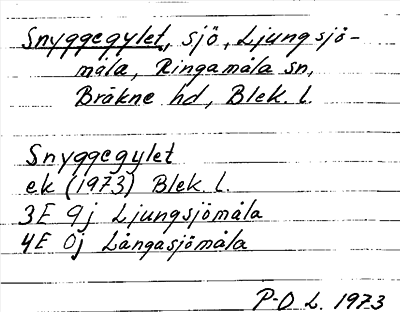 Snyggegylet, sjö, Ljungsjö-
måla, Ringamåla sn,
Bräkne hd, Blek. l.
Snyggegylet
ek (1973) Blek. l.
3E 9j Ljungsjömåla
4E 0j Långasjömåla
P-O L. 1973